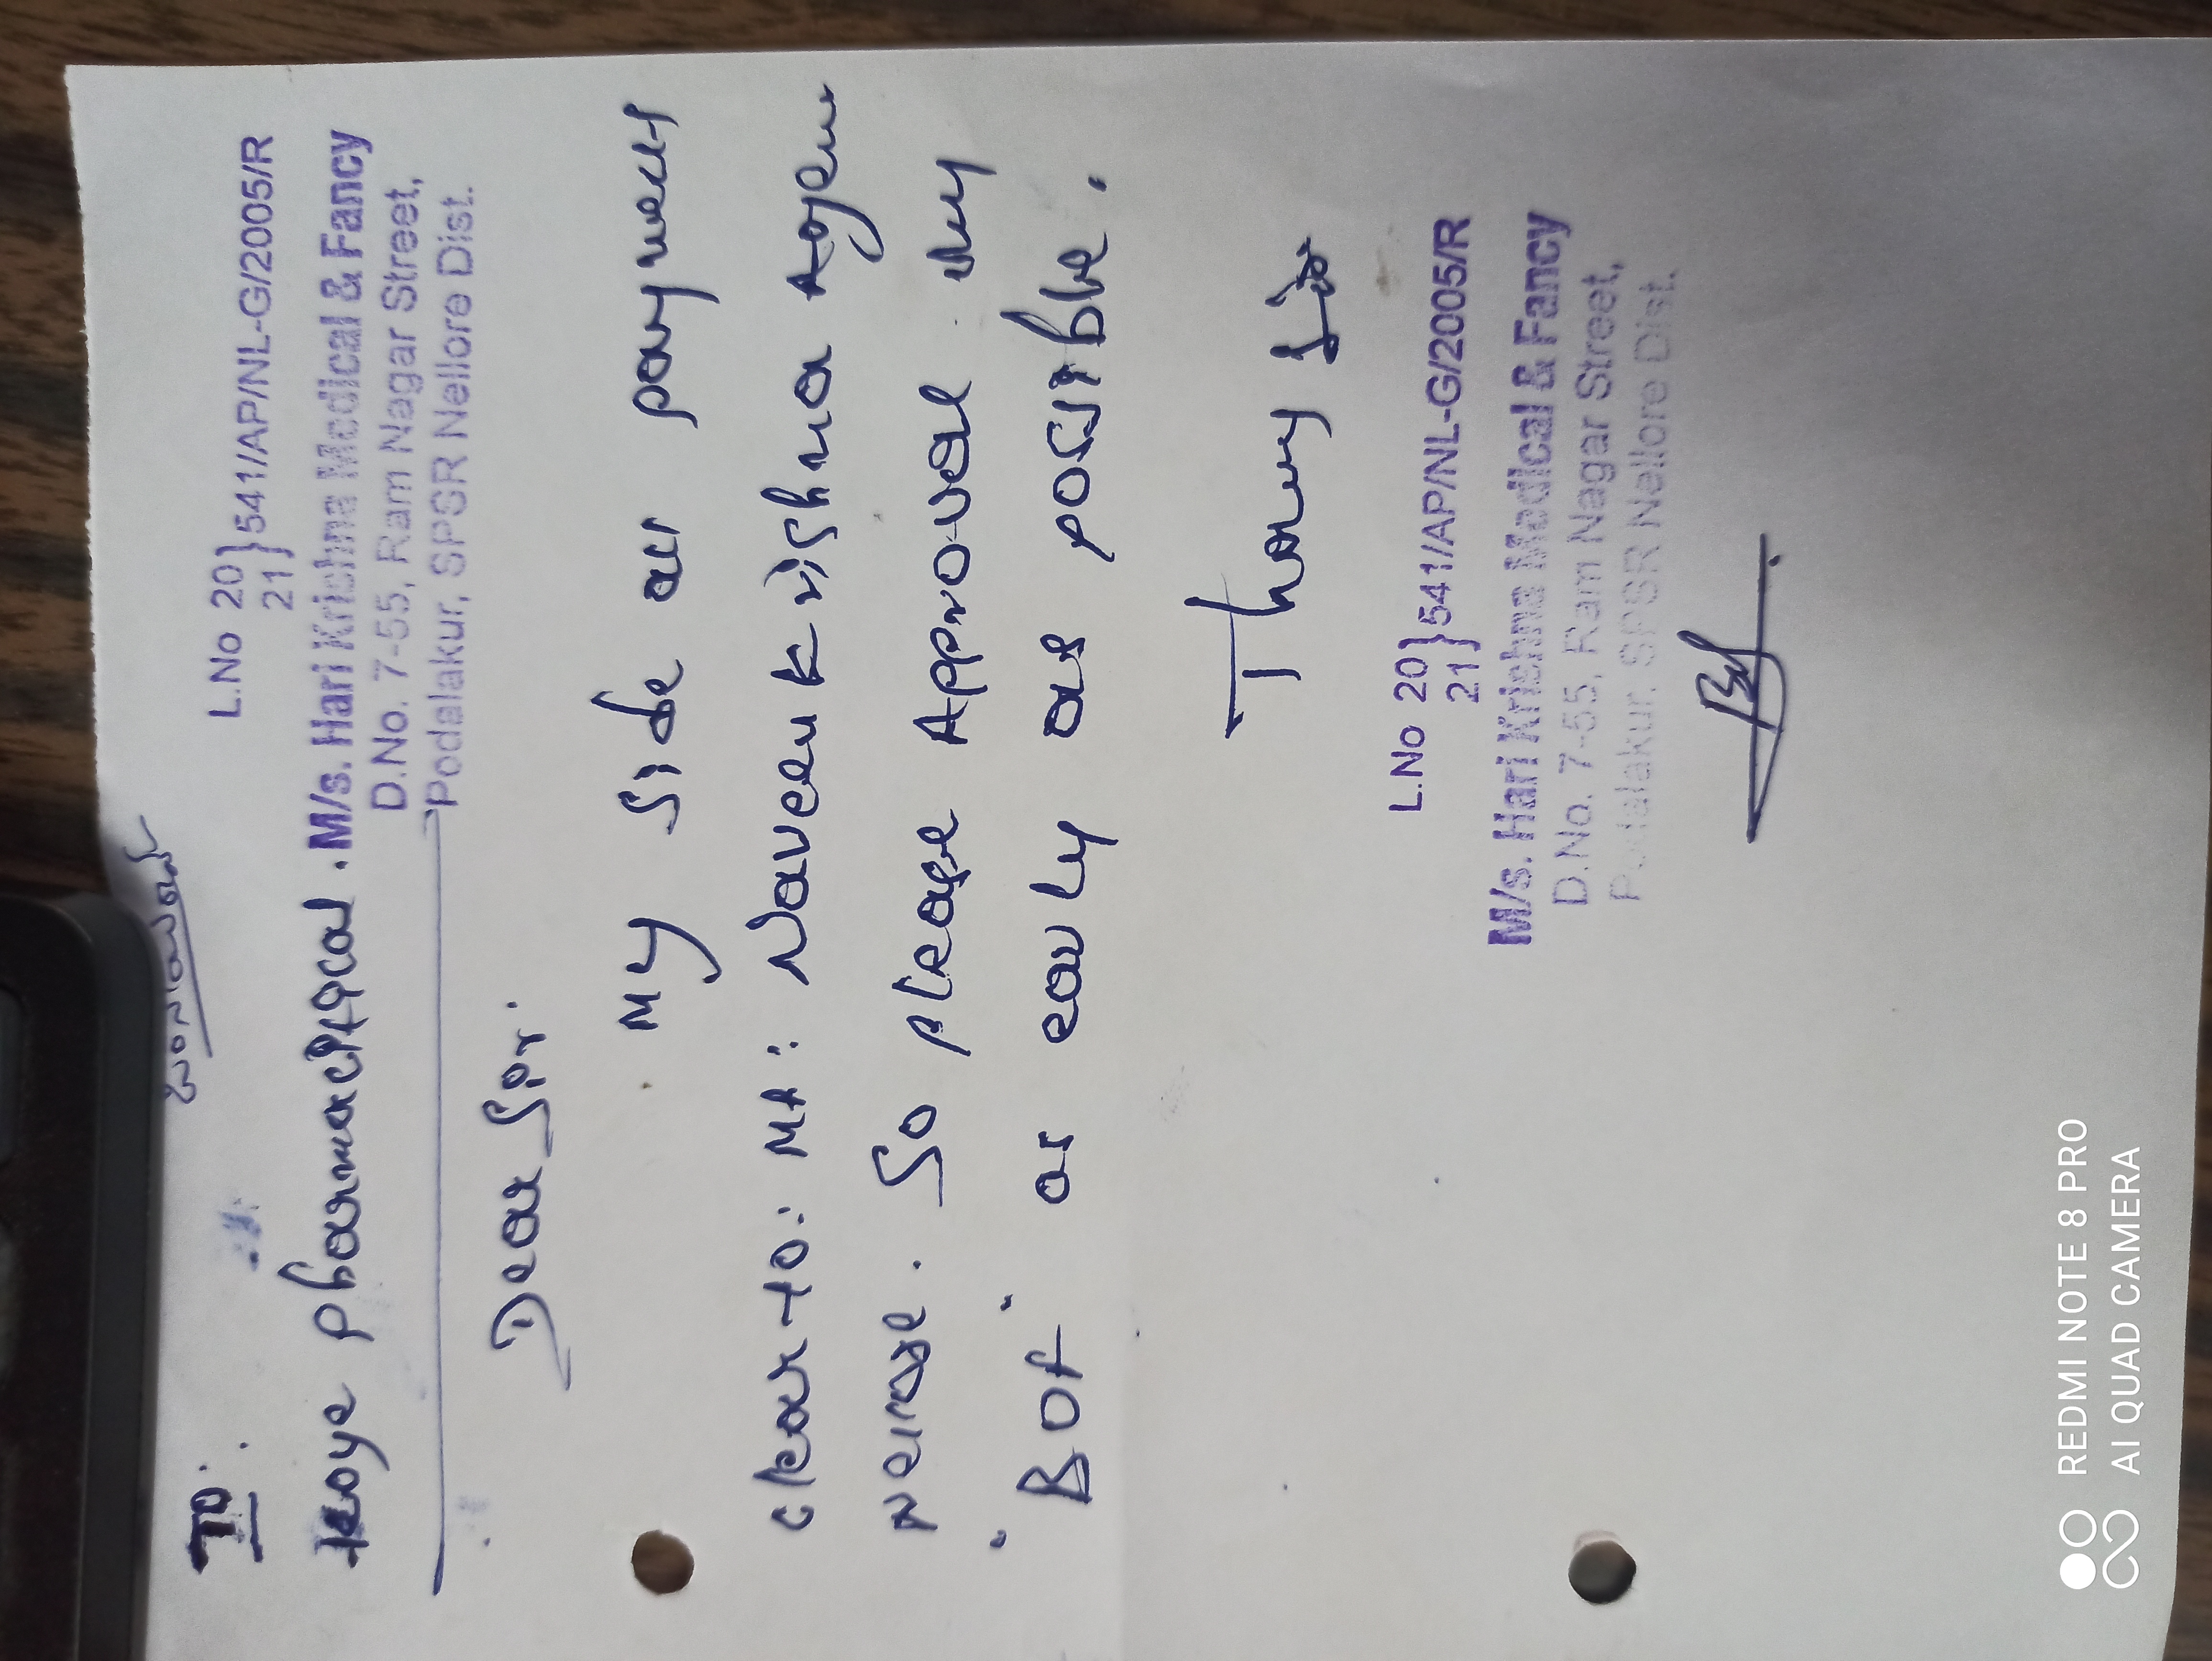 To.
Koye pharmacetical.
L.No 20} 541/AP/NL-G/2005/R
21}
M/s. Hari Krishna Medical & Fancy
D.No. 7-55, Ram Nagar Street,
Podalakur, SPSR Nellore Dist.
Dear Sir.
My side all payment
clear to: M/s: Naveen Krishna Agen
So please Approval my
"BOF" as early as possible.
L.No 20} 541/AP/NL-G/2005/R
21}
M/s. Hari Krishna Medical & Fancy
D.No. 7-55, Ram Nagar Street,
Podalakur, SPSR Nellore Dist.
REDMI NOTE 8 PRO
AI QUAD CAMERA